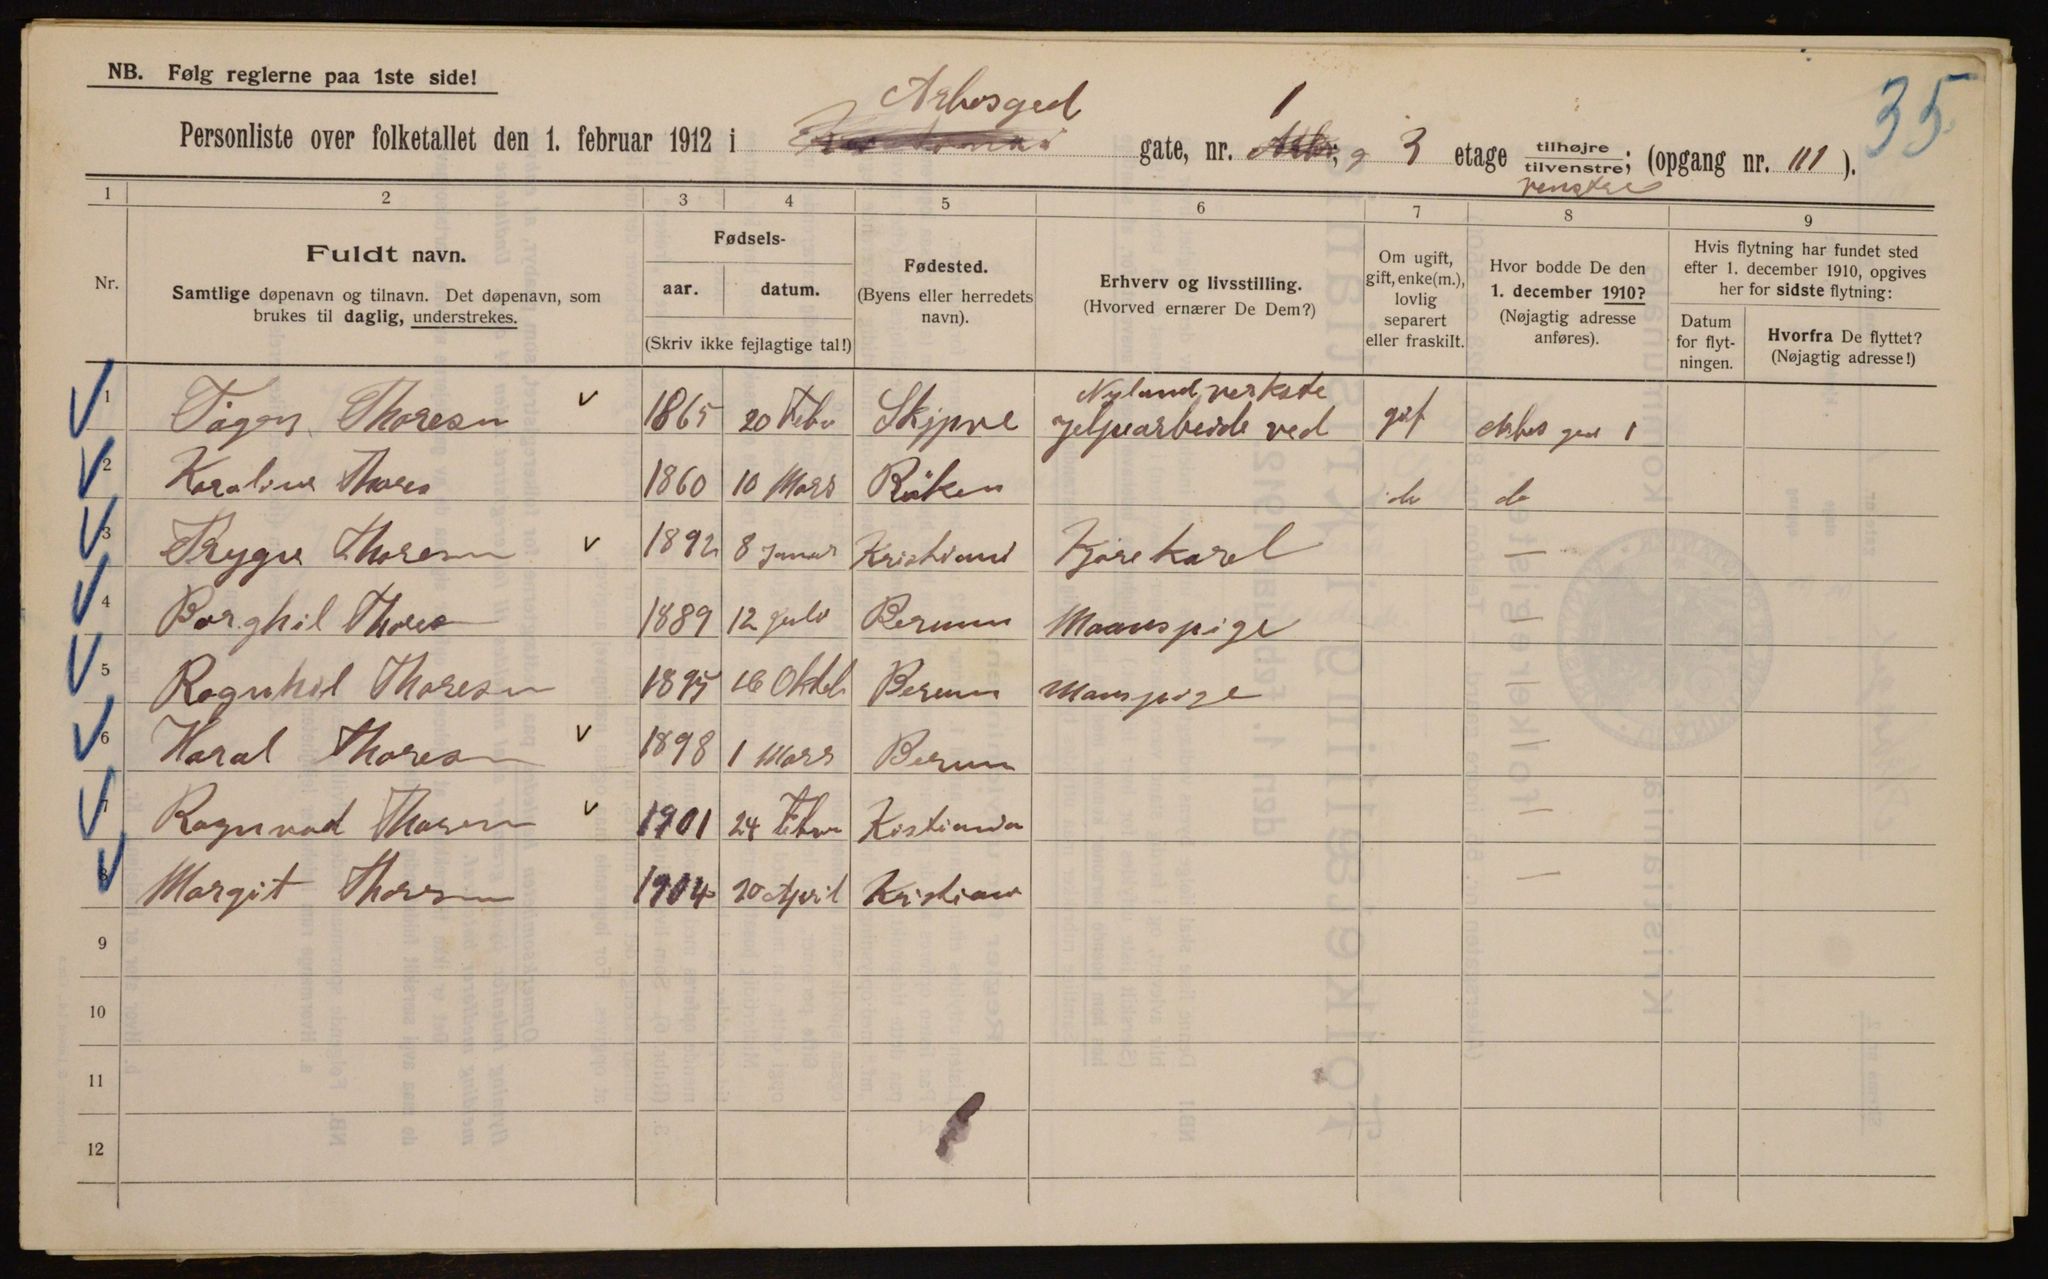 35
NB. Følg reglerne paa 1ste side!
Personliste over folketallet den 1. februar 1912 i Arbosged gate, nr. 1 3 etage tilhøjre tilvenstre; (opgang nr. 111 ).
venstre
1 2 3 4 5 6 7 8 9
Nr.
Fuldt navn.
Samtlige døpenavn og tilnavn. Det døpenavn, som brukes til daglig, understrekes.
Fødsels-
aar. datum.
(Skriv ikke fejlagtige tal!)
Fødested.
(Byens eller herredets navn).
Erhverv og livsstilling.
(Hvorved ernærer De Dem?)
Om ugift, gift, enke(m.), lovlig separert eller fraskilt.
Hvor bodde De den 1. december 1910?
(Nøjagtig adresse anføres).
Hvis flytning har fundet sted efter 1. december 1910, opgives her for sidste flytning:
Datum for flytningen.
Hvorfra De flyttet?
(Nøjagtig adresse!)
Nyland verkste
1 Thoresn 1865 20 Febr jelpearbeide ved gif Arbos ged 1
2 Karoline Thores 1860 10 Mars Röken do do
3 Trygve Thoresn 1892 8 Januar Kristiani Kjørekarel
4 Borghil Thores 1889 12 Berum Maanspige
5 Ragnhil Thoresn 1895 16 Oktob Berum Manspige
6 Haral Thoresn 1898 1 Mars Berum
7 Ragnvad Thoresn 1901 24 Febru Kistiania
8 Margit Thoresn 1904 20 April Kristiani
9
10
11
12